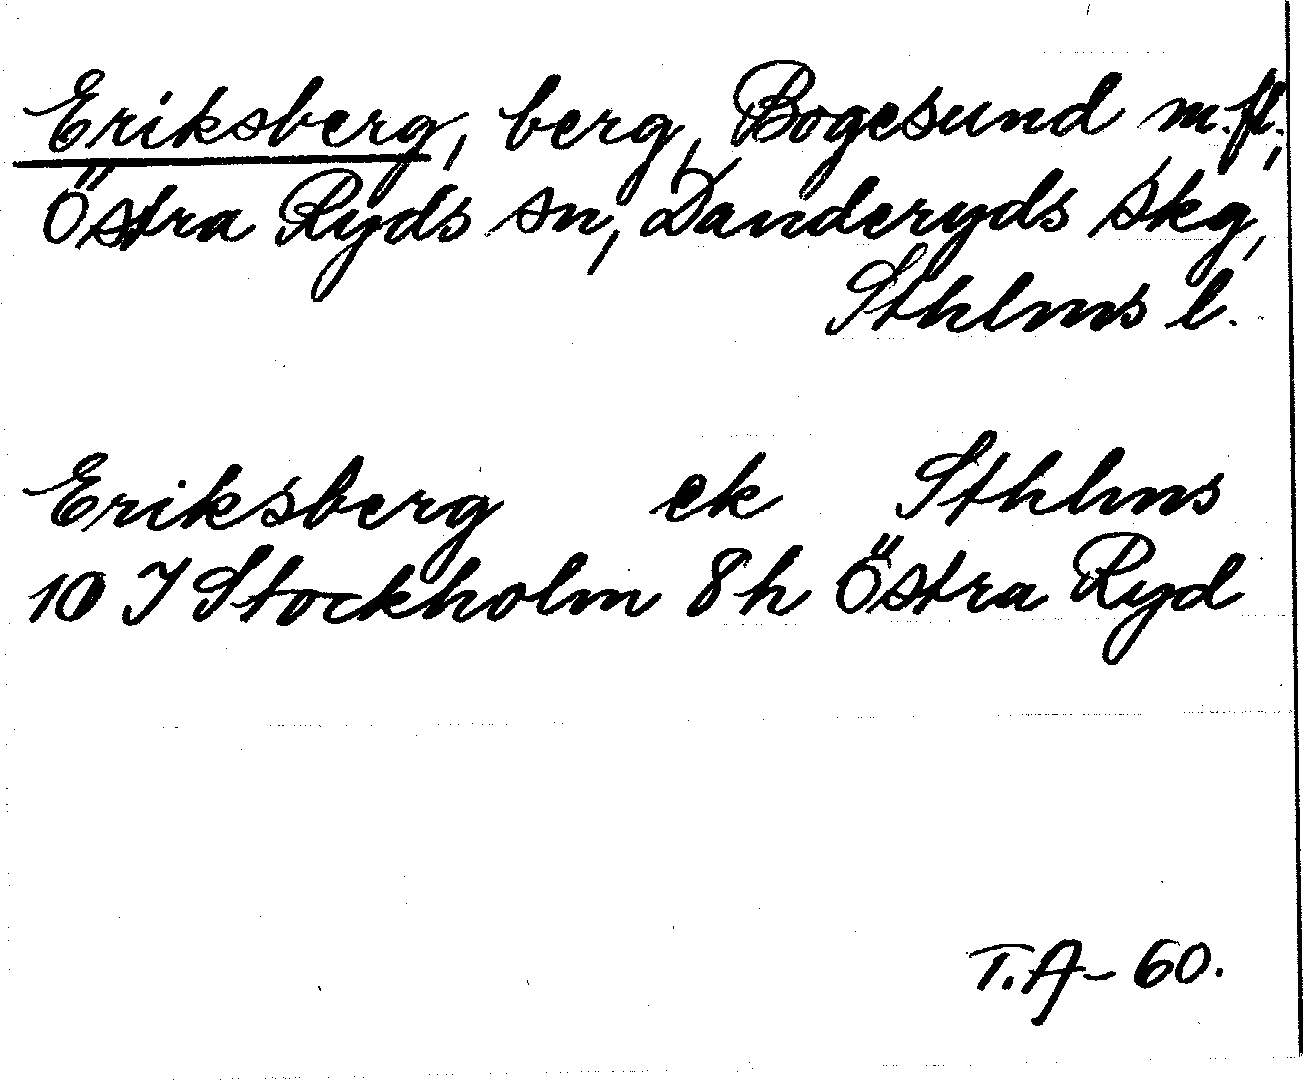 Eriksberg, berg, Bogesund m.fl.,
Östra Ryds sn, Danderyds skg,
Sthlms l.
Eriksberg ek Sthlms
10 I Stockholm 8h Östra Ryd
T.A-60.